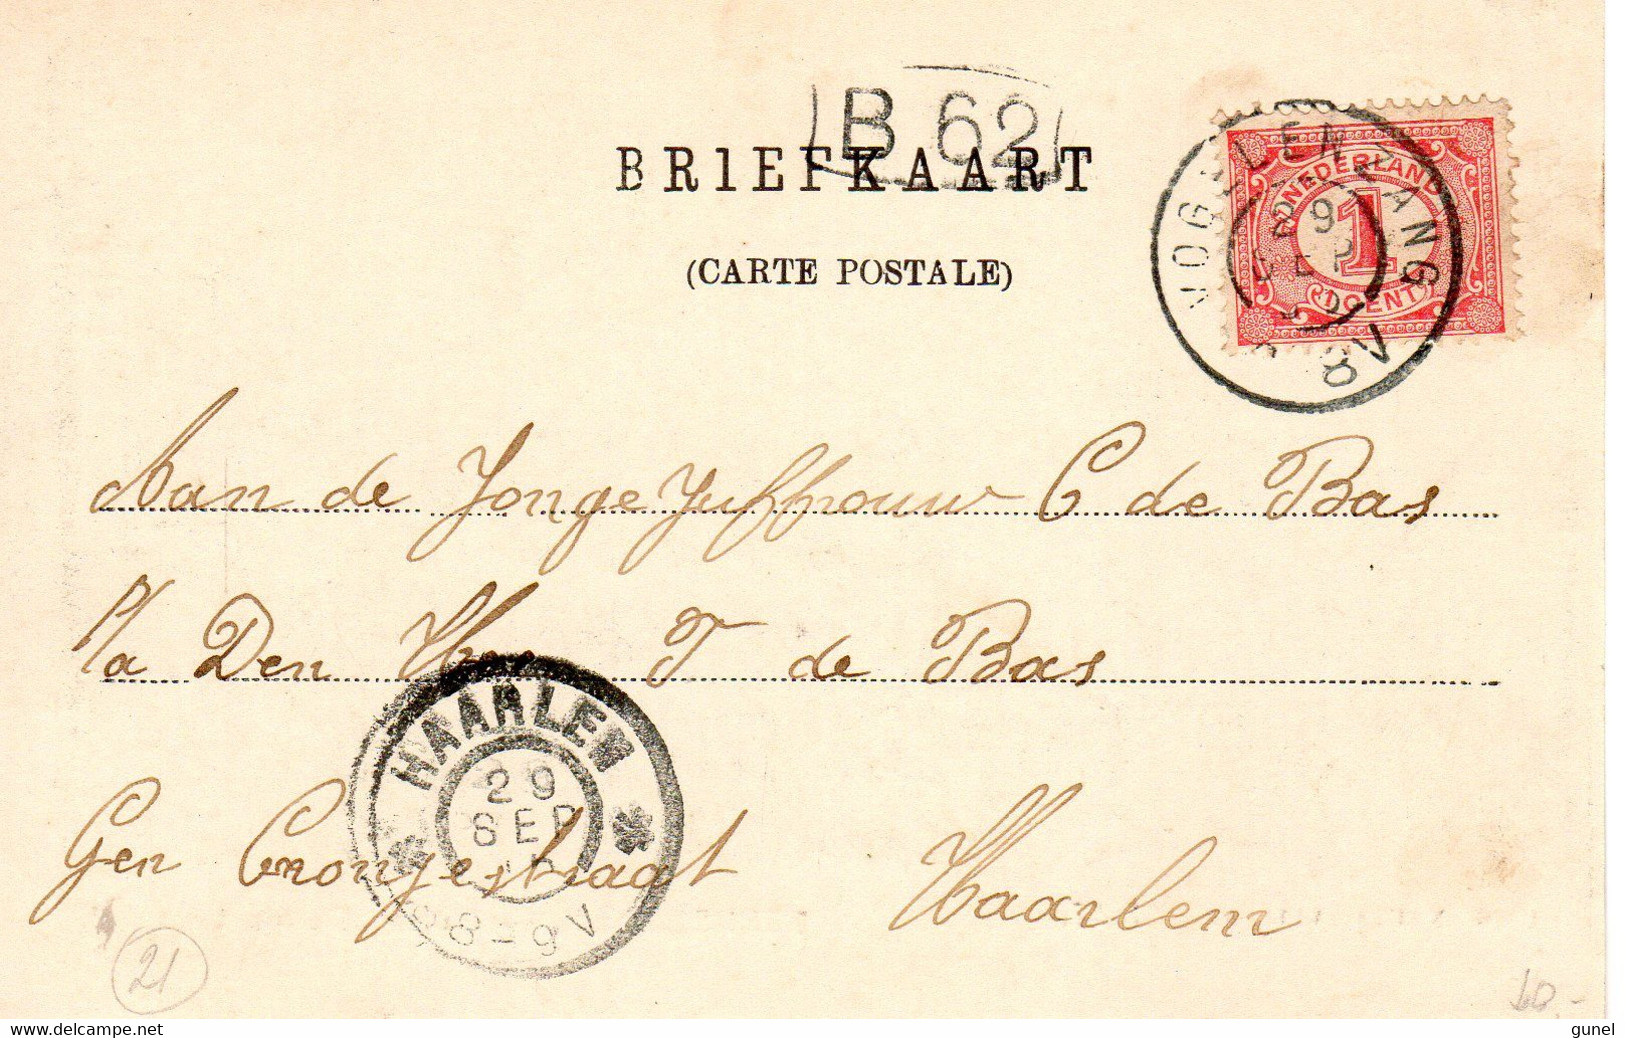 B 62
BRIEFKAART
(CARTE POSTALE)
VOGELENZANG
29
SEP
8V
NEDERLAND
1
1 CENT
Aan de Jonge Juffrouw C de Bas
P/a Den Heer T de Bas
HAARLEM
29
SEP
8-9V
Gen Cronjestraat Haarlem
21
gunel